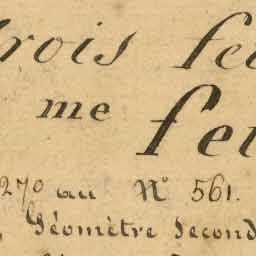 trois feu
me feu
270 au N° 561.
Géomètre Second